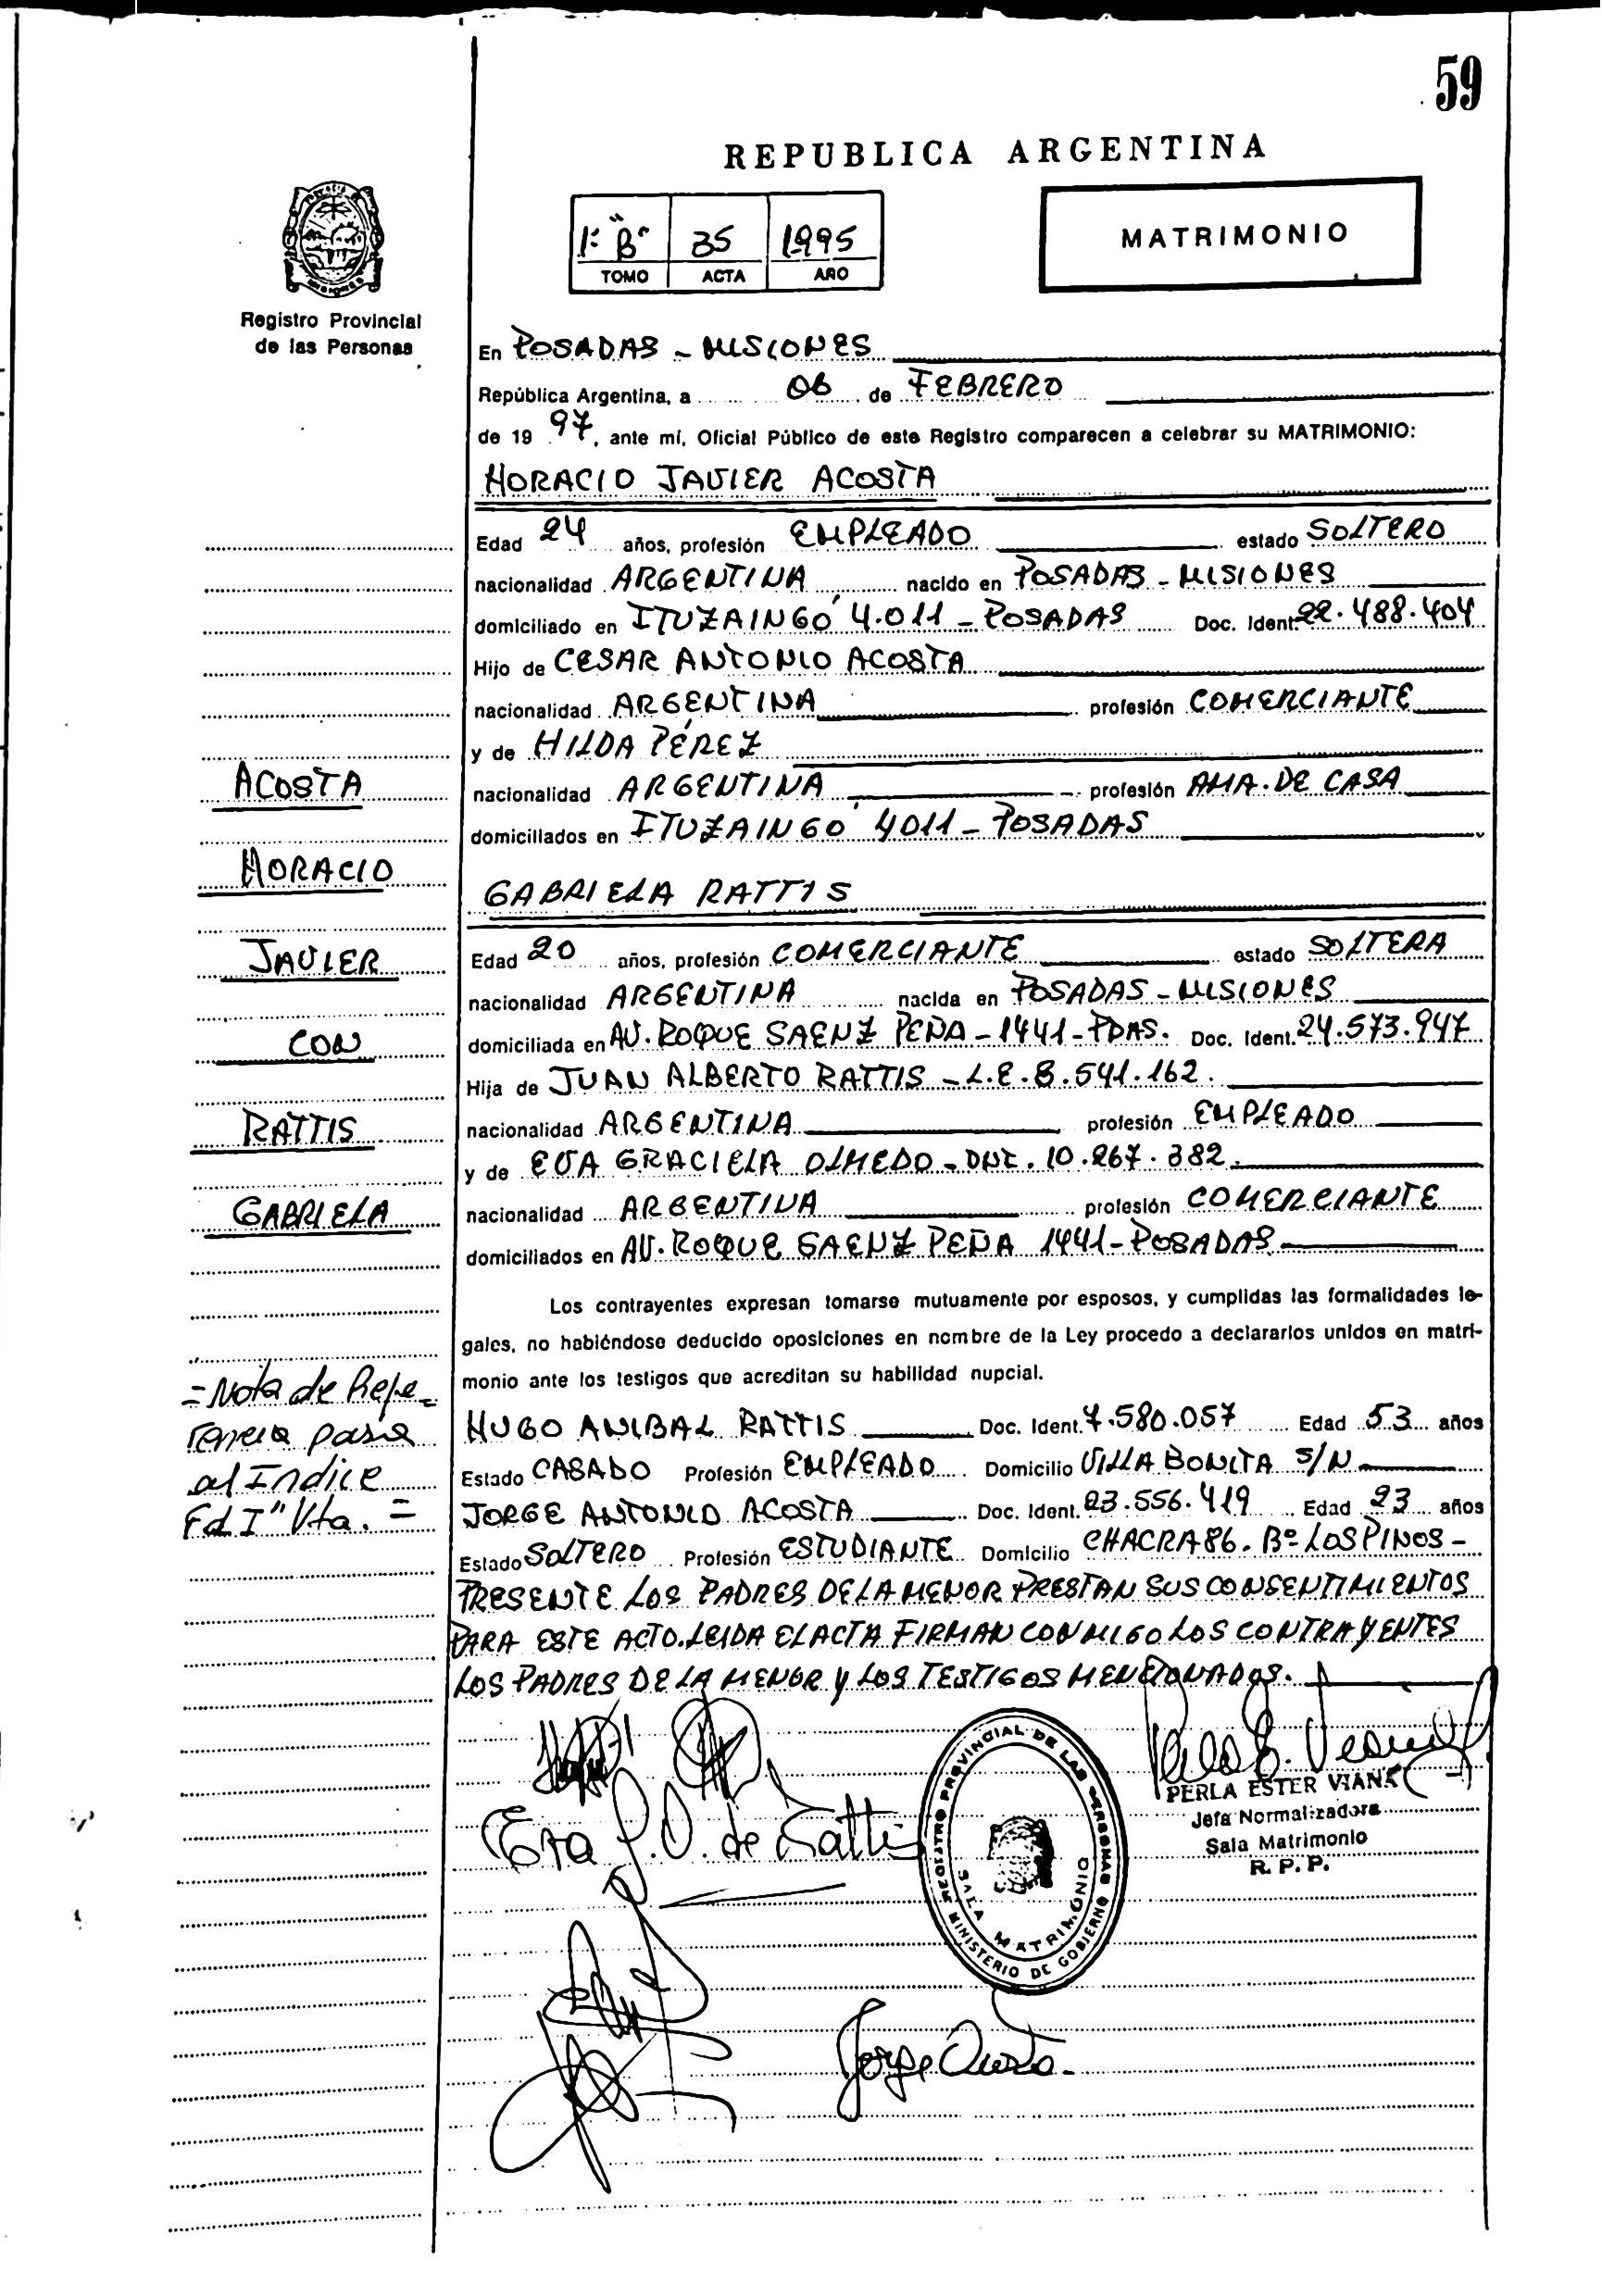 59
REPUBLICA ARGENTINA
1: "B" 35 1995
TOMO ACTA AÑO
MATRIMONIO
Registro Provincial
de las Personas
En POSADAS - MISIONES
República Argentina, a 06 de FEBRERO
de 19 97, ante mí, Oficial Público de este Registro comparecen a celebrar su MATRIMONIO:
HORACIO JAVIER ACOSTA
Edad 24 años, profesión EMPLEADO estado SOLTERO
nacionalidad ARGENTINA nacido en POSADAS - MISIONES
domiciliado en ITUZAINGÓ 4.011 - POSADAS Doc. Ident. 22.488.404
Hijo de CESAR ANTONIO ACOSTA
nacionalidad ARGENTINA profesión COMERCIANTE
y de HILDA PÉREZ
nacionalidad ARGENTINA profesión AMA.DE CASA
domiciliados en ITUZAINGÓ 4011 - POSADAS
GABRIELA RATTIS
Edad 20 años, profesión COMERCIANTE estado SOLTERA
nacionalidad ARGENTINA nacida en POSADAS - MISIONES
domiciliada en AV. ROQUE SAENZ PEÑA - 1441 - PDAS. Doc. Ident. 24.573.947
Hija de JUAN ALBERTO RATTIS - L.E. 8.541.162.
nacionalidad ARGENTINA profesión EMPLEADO
y de EVA GRACIELA OLMEDO - DNI. 10.267.382.
nacionalidad ARGENTINA profesión COMERCIANTE
domiciliados en AV. ROQUE SAENZ PEÑA 1441 - POSADAS
Los contrayentes expresan tomarse mutuamente por esposos, y cumplidas las formalidades le-
gales, no habiéndose deducido oposiciones en nombre de la Ley procedo a declararlos unidos en matri-
monio ante los testigos que acreditan su habilidad nupcial.
HUGO ANIBAL RATTIS Doc. Ident. 7.580.057 Edad 53 años
Estado CASADO Profesión EMPLEADO Domicilio VILLA BONITA S/N
JORGE ANTONIO ACOSTA Doc. Ident. 23.556.419 Edad 23 años
Estado SOLTERO Profesión ESTUDIANTE Domicilio CHACRA 86. Bº LOS PINOS -
PRESENTE LOS PADRES DE LA MENOR PRESTAN SUS CONSENTIMIENTOS
PARA ESTE ACTO. LEIDA EL ACTA FIRMAN CONMIGO LOS CONTRAYENTES
LOS PADRES DE LA MENOR Y LOS TESTIGOS MENCIONADOS.
ACOSTA
HORACIO
JAVIER
CON
RATTIS
GABRIELA
= Nota de Refe=
rencia pasa
al Indice
Fd. I" Vta. =
Eva G. O. de Rattis
REGISTRO PROVINCIAL DE LAS PERSONAS
MINISTERIO DE GOBIERNO
SALA MATRIMONIO
PERLA ESTER VIANA
Jefa Normalizadora
Sala Matrimonio
R. P. P.
Jorge Acosta